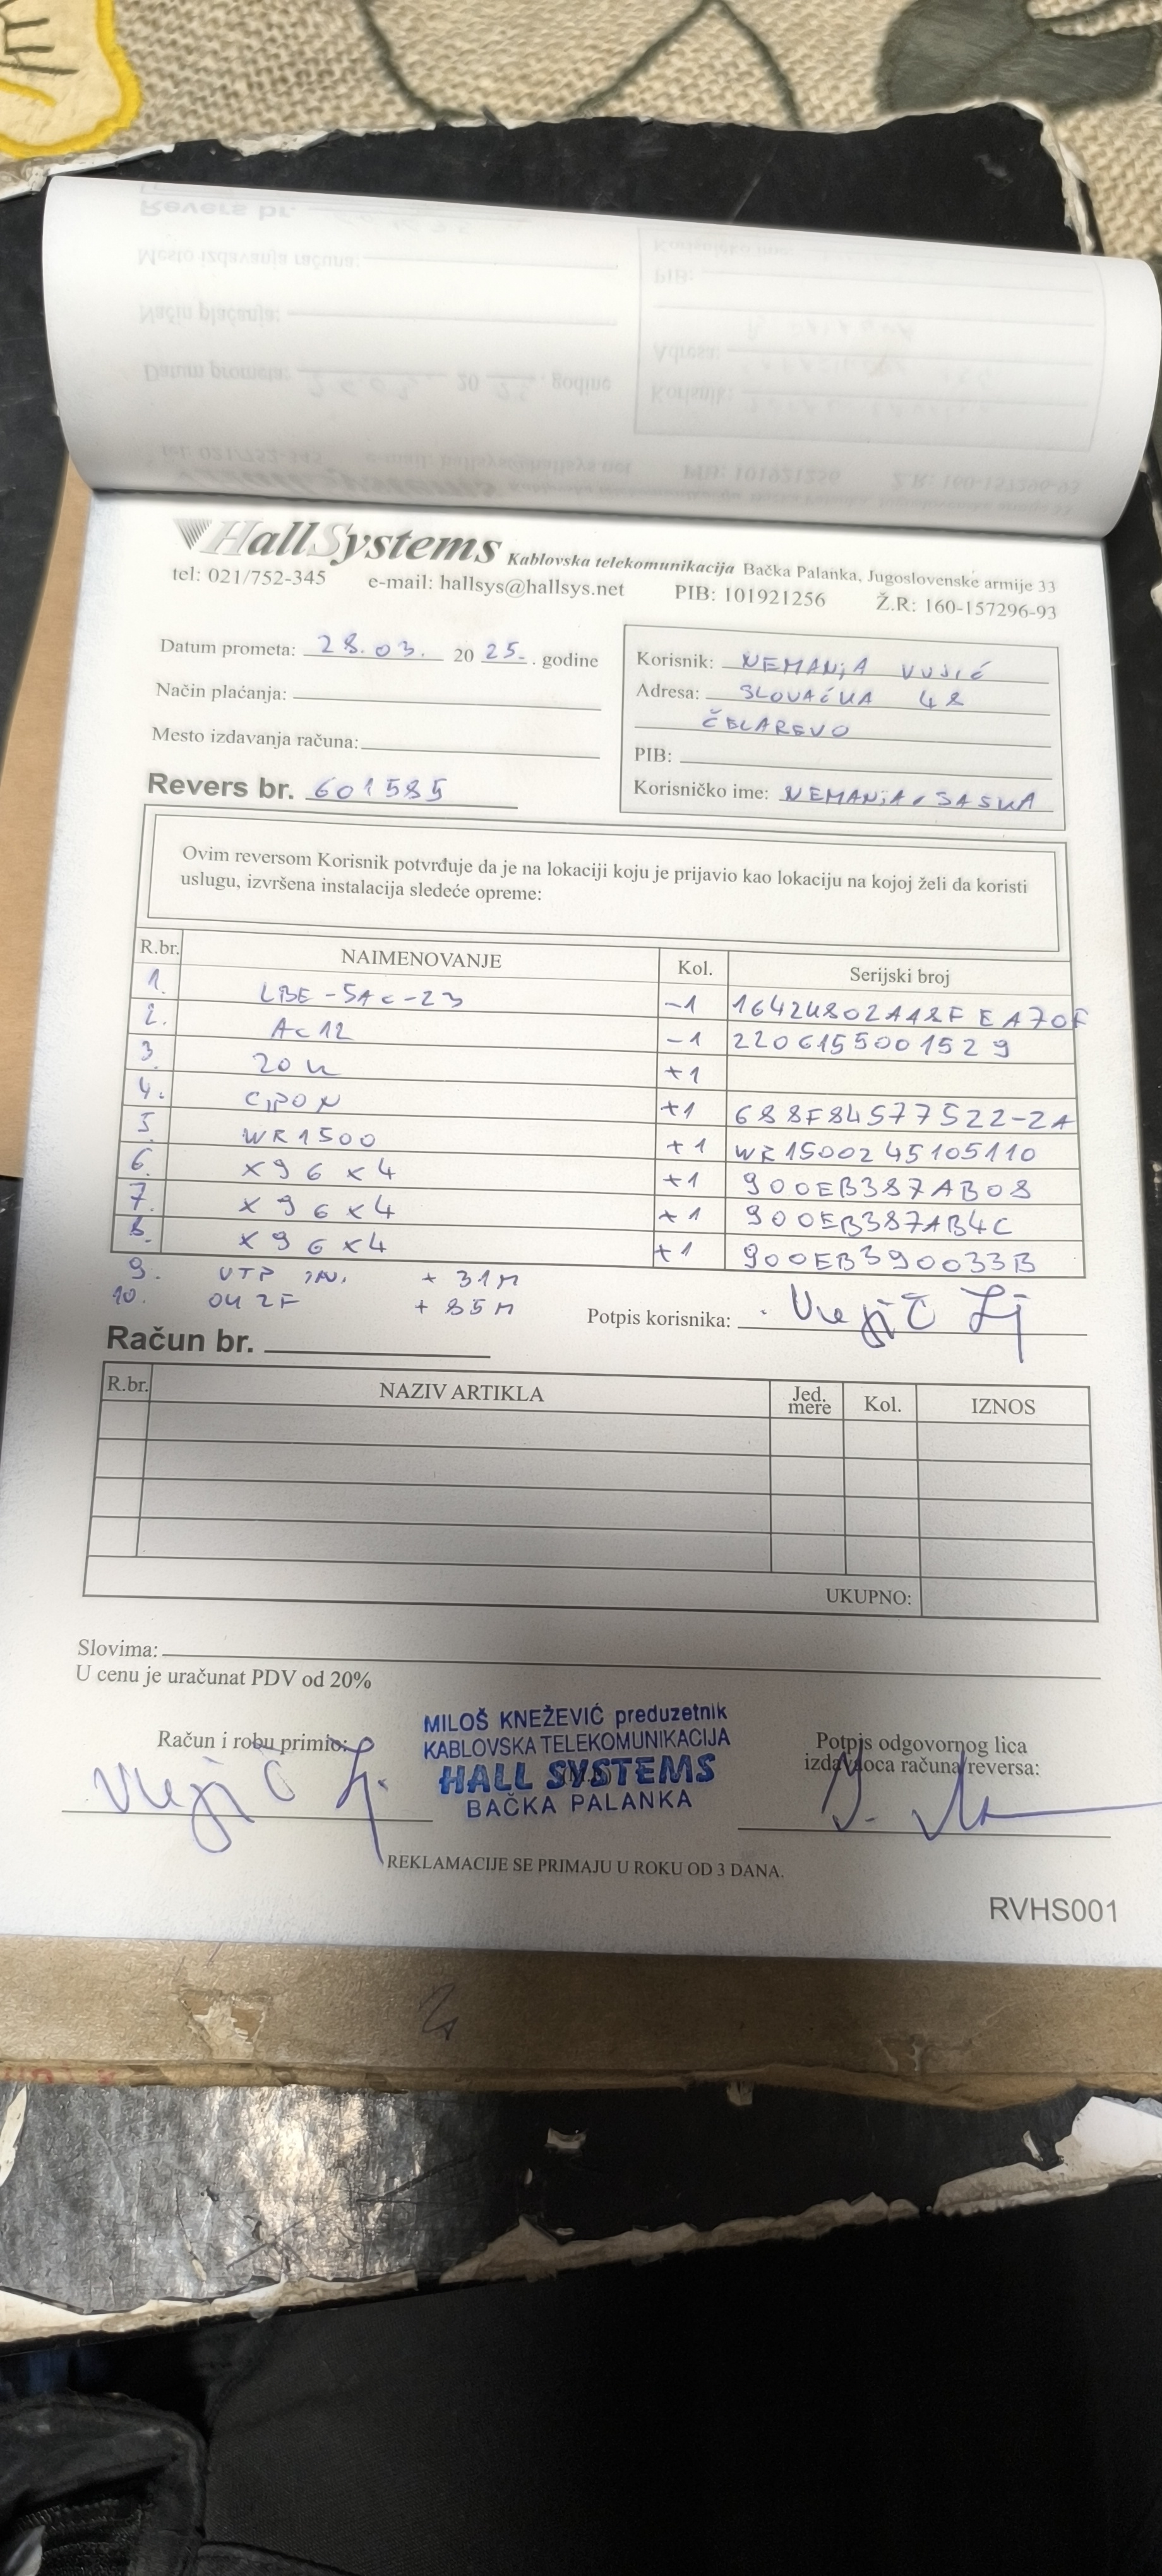 HallSystems Kablovska telekomunikacija Bačka Palanka, Jugoslovenske armije 33
tel: 021/752-345 e-mail: hallsys@hallsys.net PIB: 101921256 Ž.R: 160-157296-93
Datum prometa: 28.03. 20 25. . godine
Način plaćanja:
Mesto izdavanja računa:
Revers br. 601585
Korisnik: NEMANJA VUJIĆ
Adresa: SLOVAČKA 48
ČELAREVO
PIB:
Korisničko ime: NEMANJA.SASKA
Ovim reversom Korisnik potvrđuje da je na lokaciji koju je prijavio kao lokaciju na kojoj želi da koristi
uslugu, izvršena instalacija sledeće opreme:
R.br. NAIMENOVANJE Kol. Serijski broj
1. LBE-5AC-23 -1 16424802AA8FEA70F
2. AC12 -1 2206155001529
3. ZOK +1
4. GPON +1 688F84577522-2A
5. WR1500 +1 WR1500245105110
6. X96X4 +1 900EB387AB08
7. X96X4 +1 900EB387AB4C
8. X96X4 +1 900EB390033B
9. UTP IN. + 31M
10. OK 2F + 85M
Potpis korisnika: Vujić Lj
Račun br.
R.br. NAZIV ARTIKLA Jed. mere Kol. IZNOS
UKUPNO:
Slovima:
U cenu je uračunat PDV od 20%
Račun i robu primio:
Vujić Lj.
MILOŠ KNEŽEVIĆ preduzetnik
KABLOVSKA TELEKOMUNIKACIJA
HALL SYSTEMS
BAČKA PALANKA
Potpis odgovornog lica
izdavaoca računa/reversa:
REKLAMACIJE SE PRIMAJU U ROKU OD 3 DANA.
RVHS001